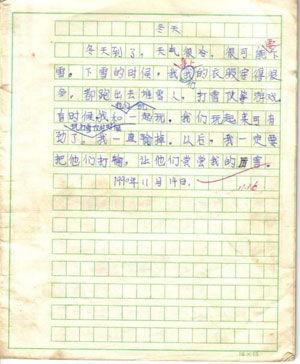 冬天
冬天到了，天气很冷，很可能下
雪。下雪的时候，我的衣服穿得很
多，都跑出去堆雪人，打雪仗等游戏。
有时候我和一起玩。我们玩起来可有
劲了。我一直输掉。以后，我一定要
把他们打输，让他们尝尝我的厉害。
1990年11月19日。